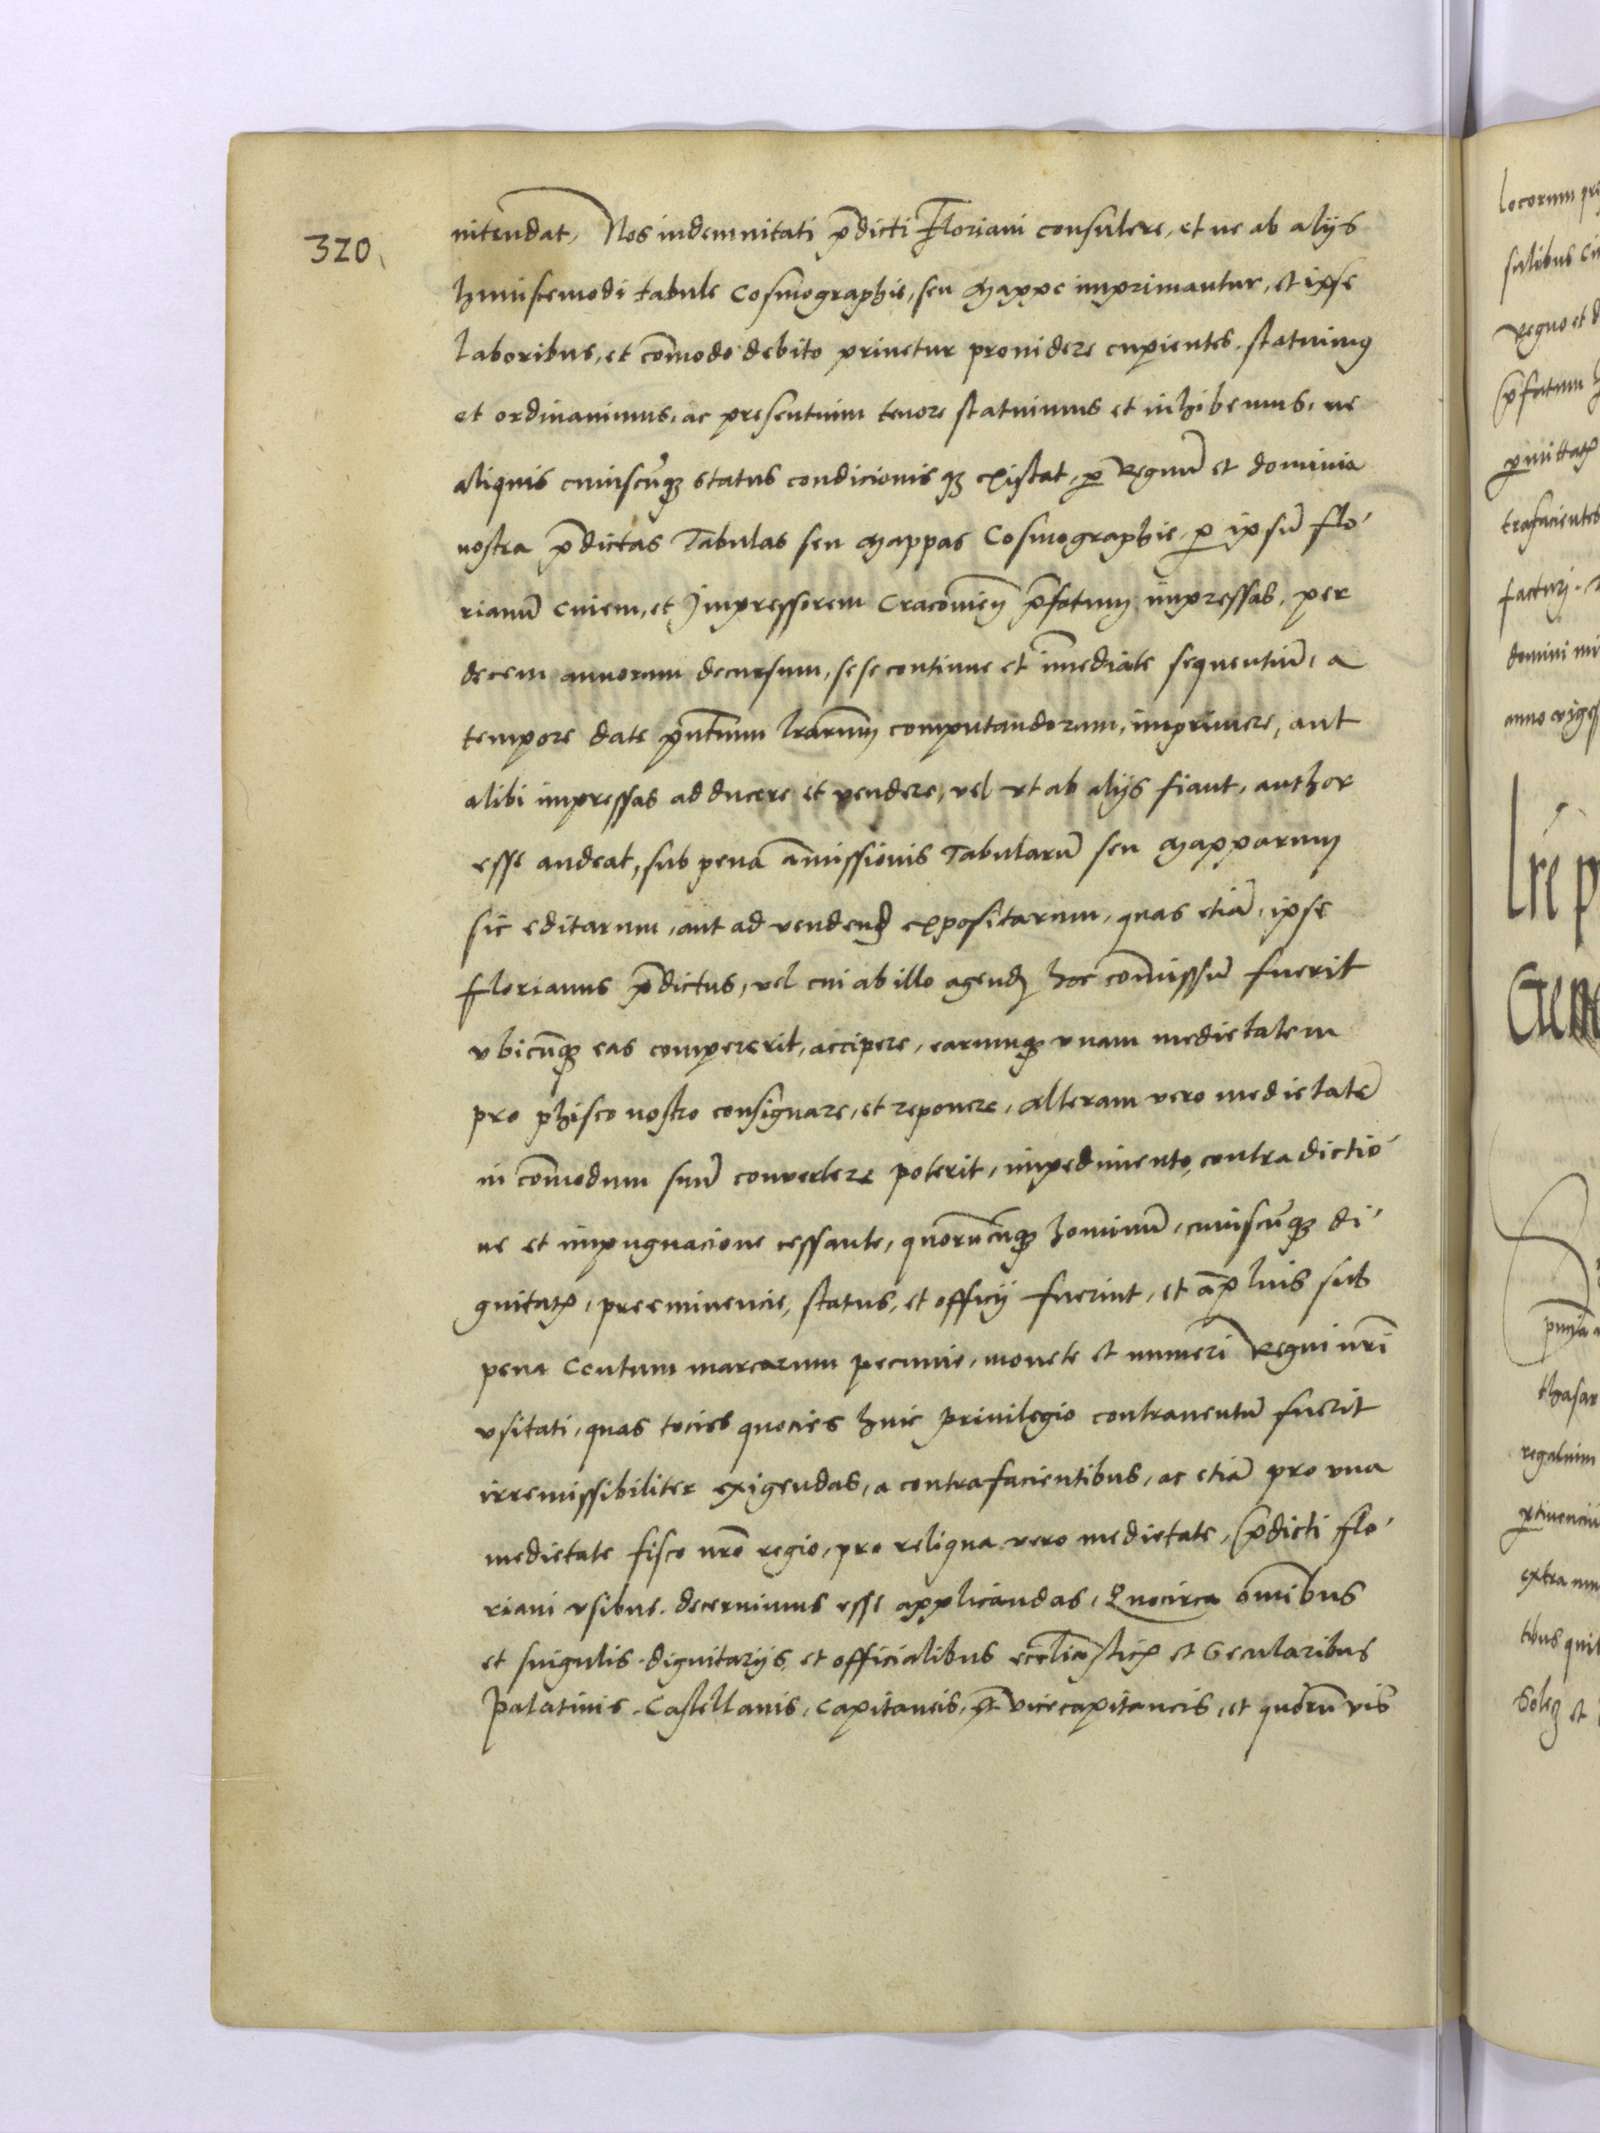 320
intendat, Nos indemnitati p̄dicti Floriani consulere, et ne ab alijs
huiuscemodi tabule Cosmographie, seu Mappe imprimantur, et ipse
laboribus, et com̄odo debito priuetur prouidere cupientes. statuimus
et ordinauimus, ac presentium tenore statuimus et inhibemus, ne
aliquis cuiuscunq3 status condicionisq3 existat, per Regnum̄ et dominia
nostra p̄dictas Tabulas seu Mappas Cosmographie, per ipsum̄ Flo
rianum̄ ciuem, et Impressorem Cracouien̄ p̄fatum impressas, per
decem annorum decursum, sese continue et im̄ediate sequentium̄, a
tempore date pn̄tium lrarum̄ computandorum, imprimere, aut
alibi impressas adducere et vendere, vel vt ab alijs fiant, author
esse audeat, sub pena am̄issionis Tabularum̄ seu Mapparum
sic editarum, aut ad vendend̄ expositarum, quas etiam̄, ipse
Florianus p̄dictus, vel cui ab illo agend̄ hoc com̄issum̄ fuerit
vbicunq3 eas compererit, accipere, earumq3 vnam medietatem
pro phisco nostro consignare, et reponere, alteram vero medietatem̄
in com̄odum suum̄ conuertere poterit, impedimento, contradictio
ne et impugnacione cessante, quorum̄cunq3 hominum̄, cuiuscunq3 di
gnitatis, preeminencie, status, et officij fuerint, et amplius sub
pena Centum marcarum pecunie, monete et numeri Regni nr̄i
vsitati, quas tocies quocies huic priuilegio contrauentum̄ fuerit
irremissibiliter exigendas, a contrafacientibus, ac etiam̄ pro vna
medietate fisco nr̄o regio, pro reliqua vero medietate, p̄dicti Flo
riani vsibus. decernimus esse applicandas, Quocirca om̄ibus
et singulis. dignitarijs, et officialibus ecclīasticis et Secularibus
Palatinis. Castellanis, Capitaneis, et vicecapitaneis, et quorum̄vis
locorum
salibus
Regno et
p̄fatum
permittatis
trafacientes
facturi.
domini
anno
Lrē
regalium
extra
tibus
et